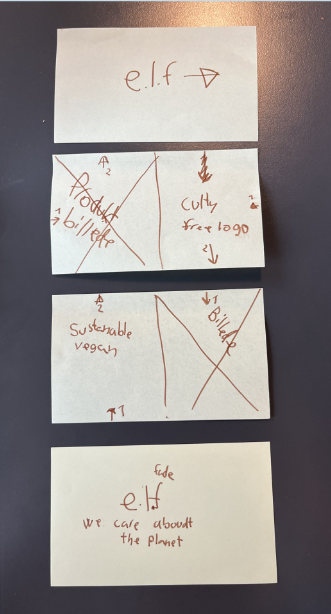 e.l.f
2
Produkt
1 billete
Cutty
free logo
2
2
Sustenable
vegan
1
1
Billete
fade
e.l.f
we care aboudt
the planet